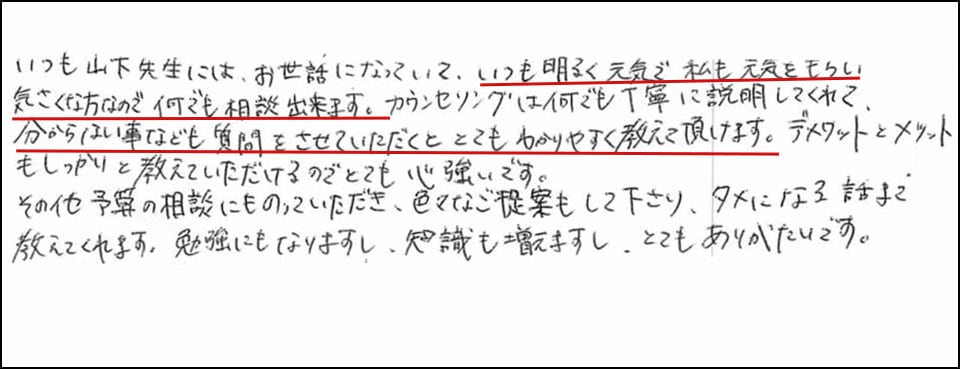 いつも山下先生には、お世話になっていて、いつも明るく元気で私も元気をもらい
気さくな方なので何でも相談出来ます。カウンセリングは何でも丁寧に説明してくれて、
分からない事なども質問をさせていただくととてもわかりやすく教えて頂けます。デメリットとメリット
もしっかりと教えていただけるのでとても心強いです。
その他予算の相談にものっていただき、色々なご提案もして下さり、タメになる話まで
教えてくれます。勉強にもなりますし、知識も増えますし、とてもありがたいです。